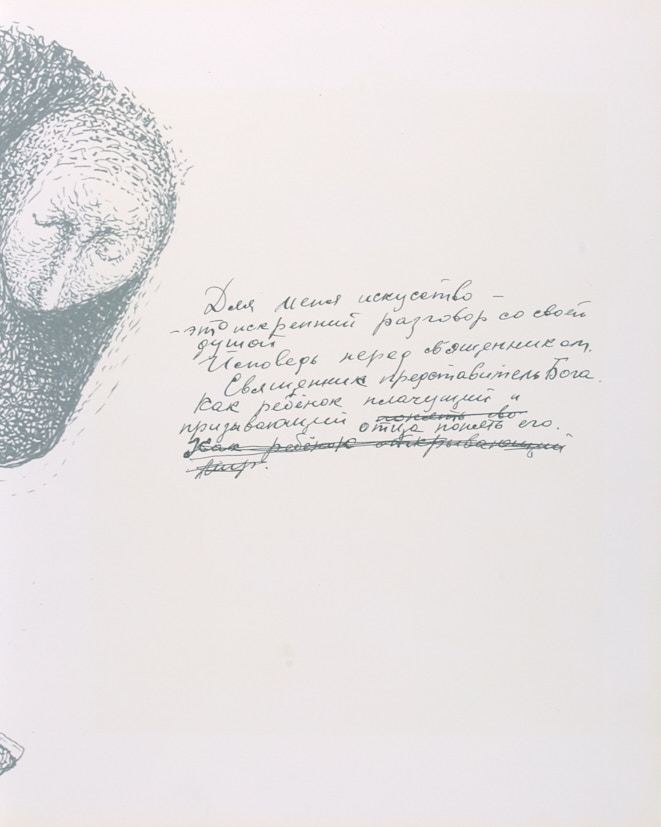 Для меня искусство –
– это искренний разговор со своей
душой
Исповедь перед священником.
Священник представитель Бога.
Как ребёнок плачущий и
призывающий понять сво
отца понять его.
Как ребёнок открывающий
мир.